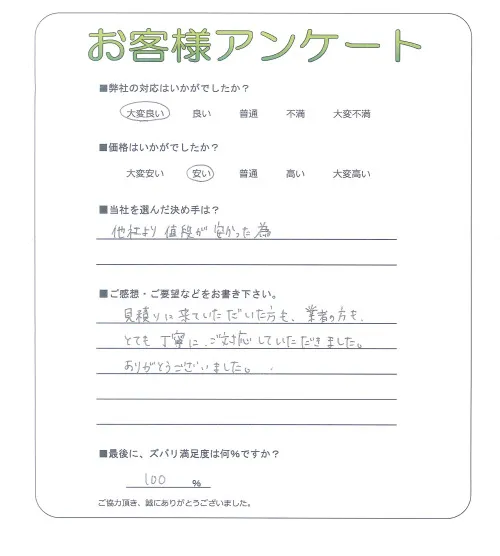 お客様アンケート
■弊社の対応はいかがでしたか？
大変良い 良い 普通 不満 大変不満
■価格はいかがでしたか？
大変安い 安い 普通 高い 大変高い
■当社を選んだ決め手は？
他社より値段が安かった為
■ご感想・ご要望などをお書き下さい。
見積りに来ていただいた方も、業者の方も、
とても丁寧に、ご対応していただきました。
ありがとうございました。
■最後に、ズバリ満足度は何％ですか？
100 ％
ご協力頂き、誠にありがとうございました。